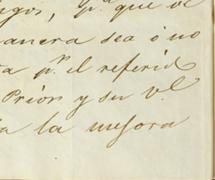 p.ª que se
manera sea o no
p.r el referid
Prior y su v.e
a la mejora